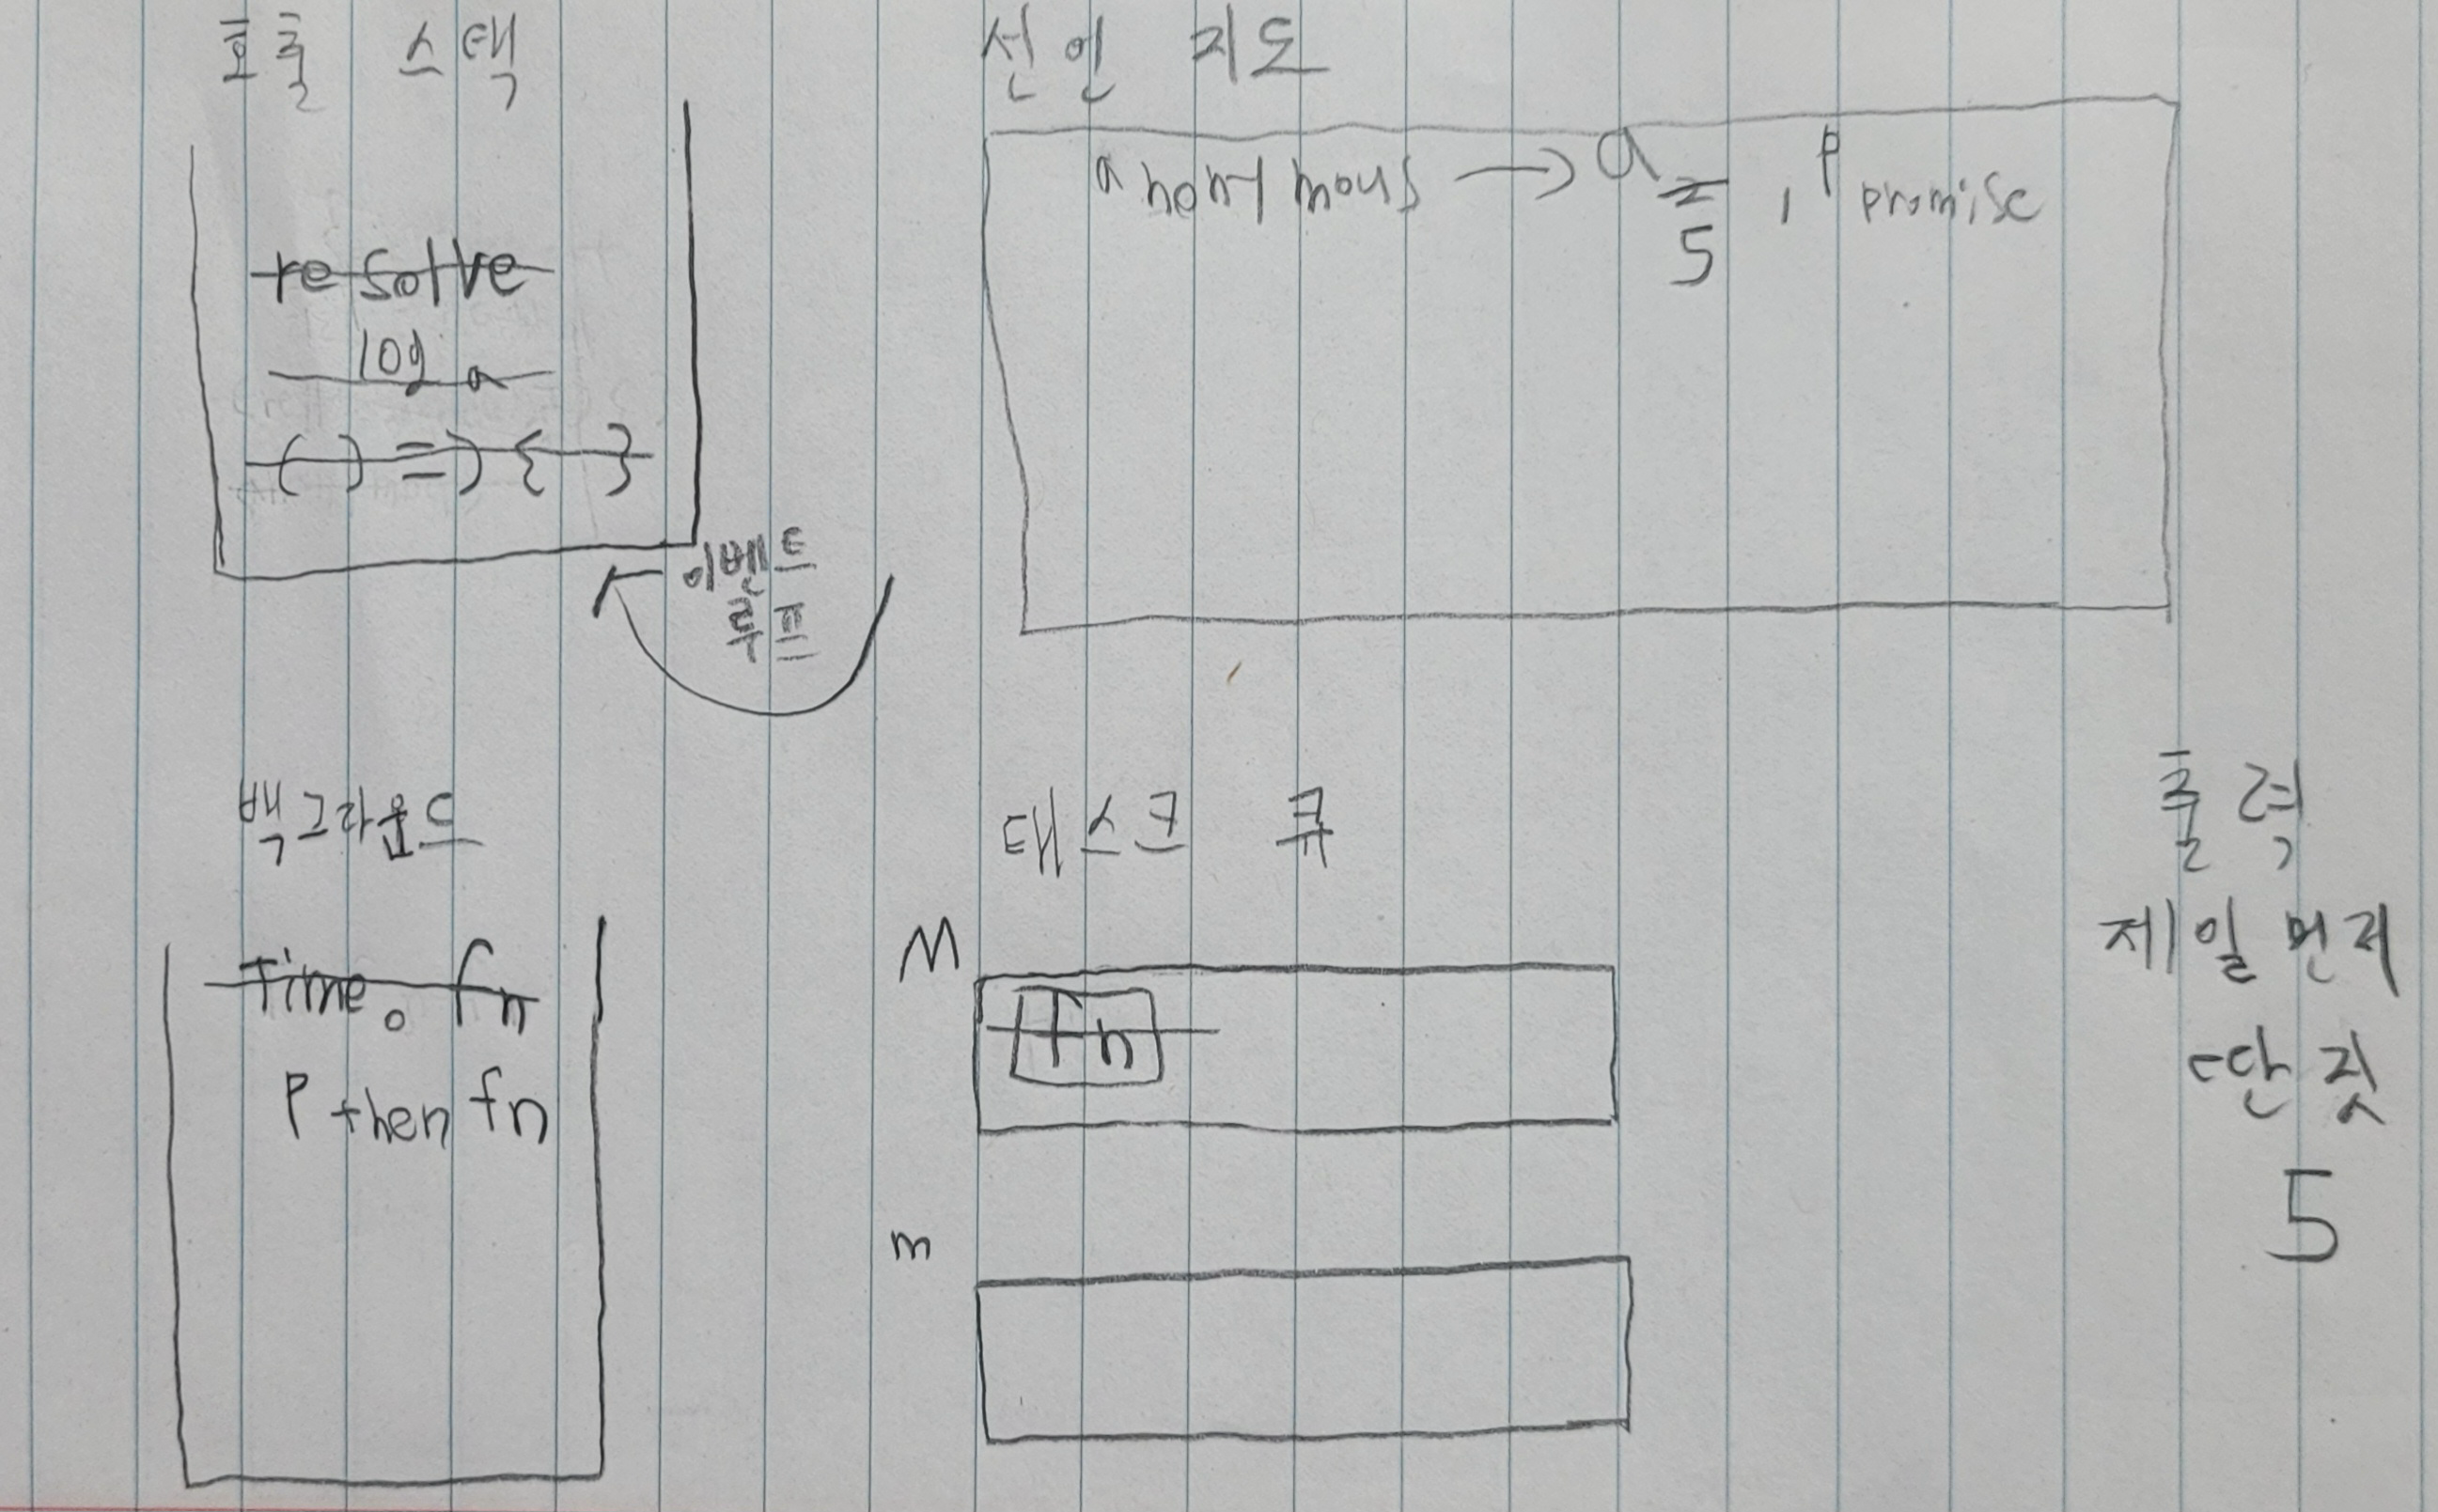 호출 스택
resolve
log a
( ) => { }
이벤트
루프
선언 지도
anonymous → a 2 , p promise
5
백그라운드
Time 0 fn
P then fn
태스크 큐
M
fn
m
출력
제일 먼저
딴 짓
5